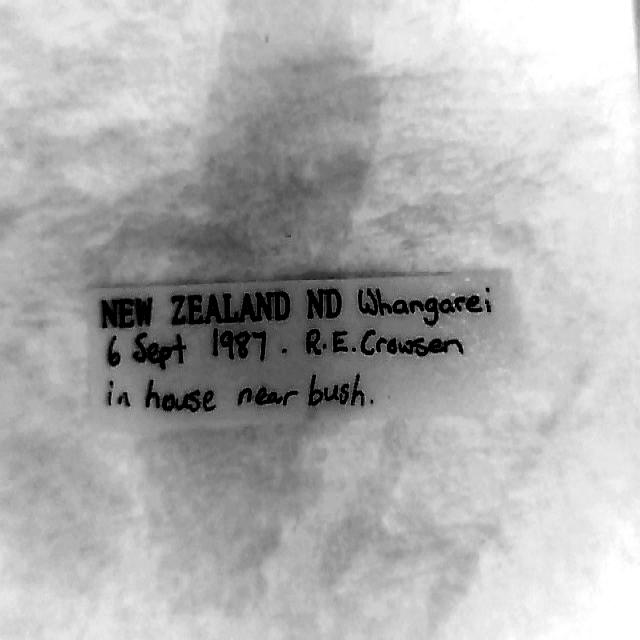 NEW ZEALAND ND Whangarei
6 Sept 1987. R.E. Crowsen
in house near bush.